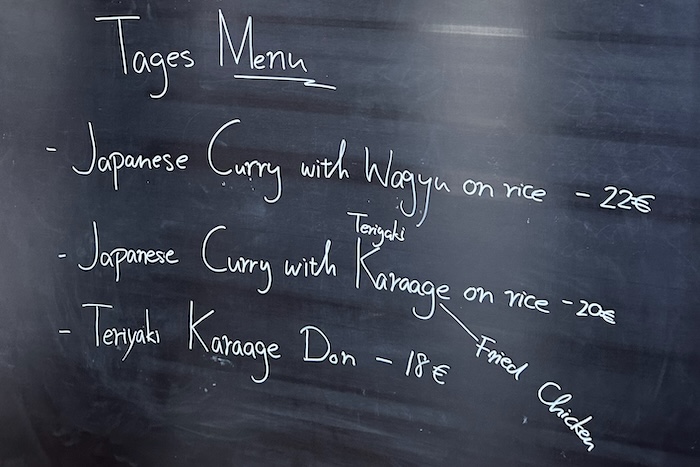 Tages Menu
- Japanese Curry with Wagyu on rice - 22€
Teriyaki
- Japanese Curry with Karaage on rice - 20€
- Teriyaki Karaage Don - 18€
Fried Chicken